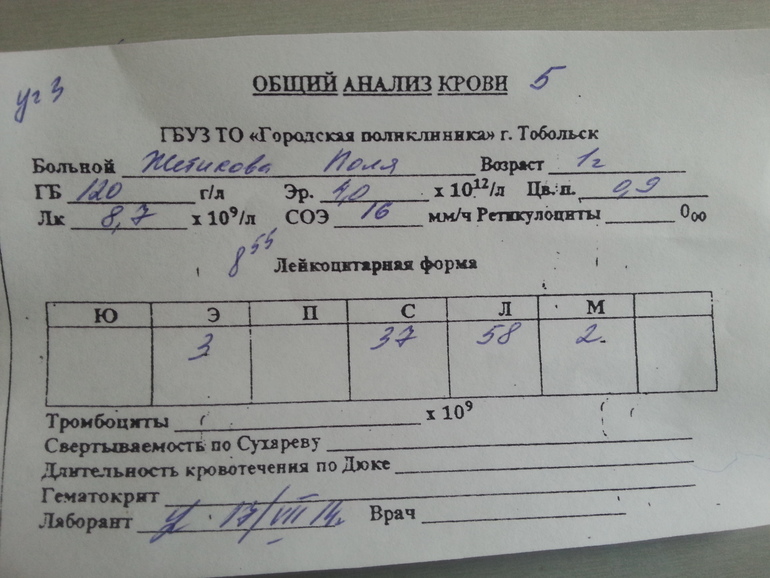 уч 3
ОБЩИЙ АНАЛИЗ КРОВИ 5
ГБУЗ ТО «Городская поликлиника» г. Тобольск
Больной Поля Возраст 1г
ГБ 120 г/л Эр. 4,0 х 10¹²/л Цв.п. 0,9
Лк 8,7 х 10⁹/л СОЭ 16 мм/ч Ретикулоциты 0₀₀
8⁵⁵ Лейкоцитарная форма
Ю Э П С Л М
3 37 58 2
Тромбоциты х 10⁹
Свертываемость по Сухареву
Длительность кровотечения по Дюке
Гематокрит
Лаборант 17/VII 14. Врач